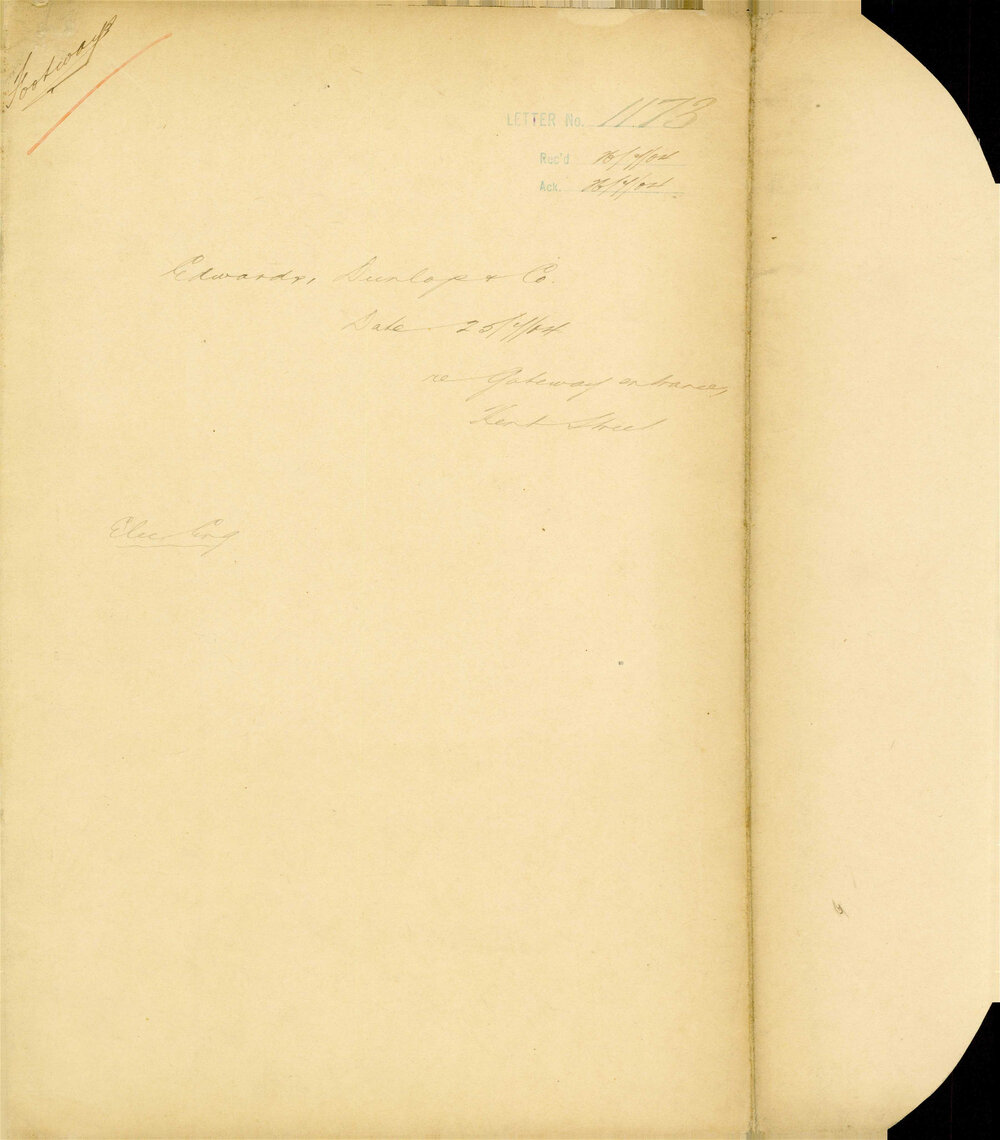 Footways
LETTER No. 1173
Rec'd 26/7/04
Ack. 26/7/04
Edwards, Dunlop & Co.
Date 25/7/04
re Gateway entrance,
Kent Street
Elec Eng